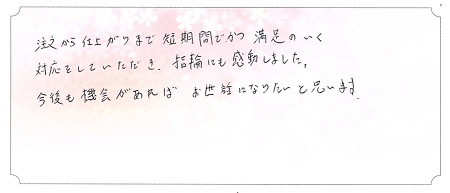 注文から仕上がりまで短期間でかつ満足のいく
対応をしていただき、指輪にも感動しました。
今後も機会があれば お世話になりたいと思います.